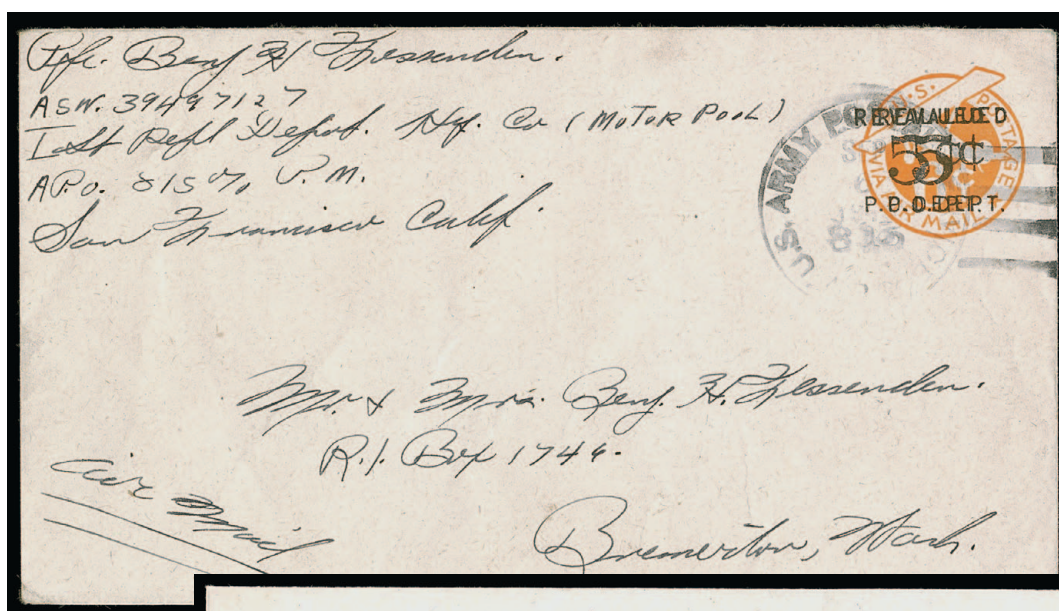 Pfc. Benj H Fessenden.
ASN. 39497127
Repl Depot. Hq. Co (MOTOR POOL)
APO. 815 %, P.M.
San Francisco Calif.
U.S. ARMY
U.S. POSTAGE
VIA AIR MAIL
REVALUED
5¢
P.O. DEPT.
Mr. & Mrs. Benj. H. Fessenden.
R.1. Box 1746.
Air Mail
Bremerton, Wash.